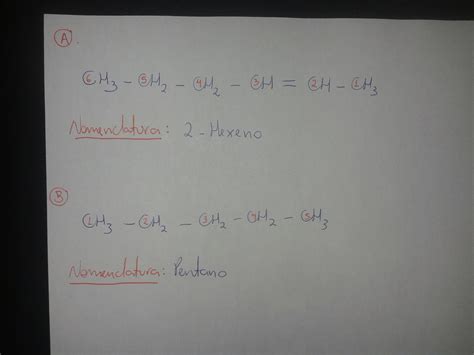 A.
CH3 - CH2 - CH2 - CH = CH - CH3
Nomenclatura: 2-Hexeno
B
CH3 - CH2 - CH2 - CH2 - CH3
Nomenclatura: Pentano